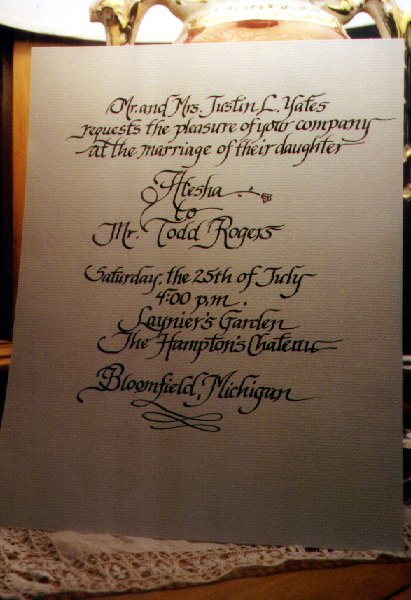 Mr. and Mrs. Justin L. Yates
requests the pleasure of your company
at the marriage of their daughter
Atesha
to
Mr. Todd Rogers
Saturday, the 25th of July
4:00 p.m.
Laynier's Garden
The Hampton's Chateau
Bloomfield, Michigan